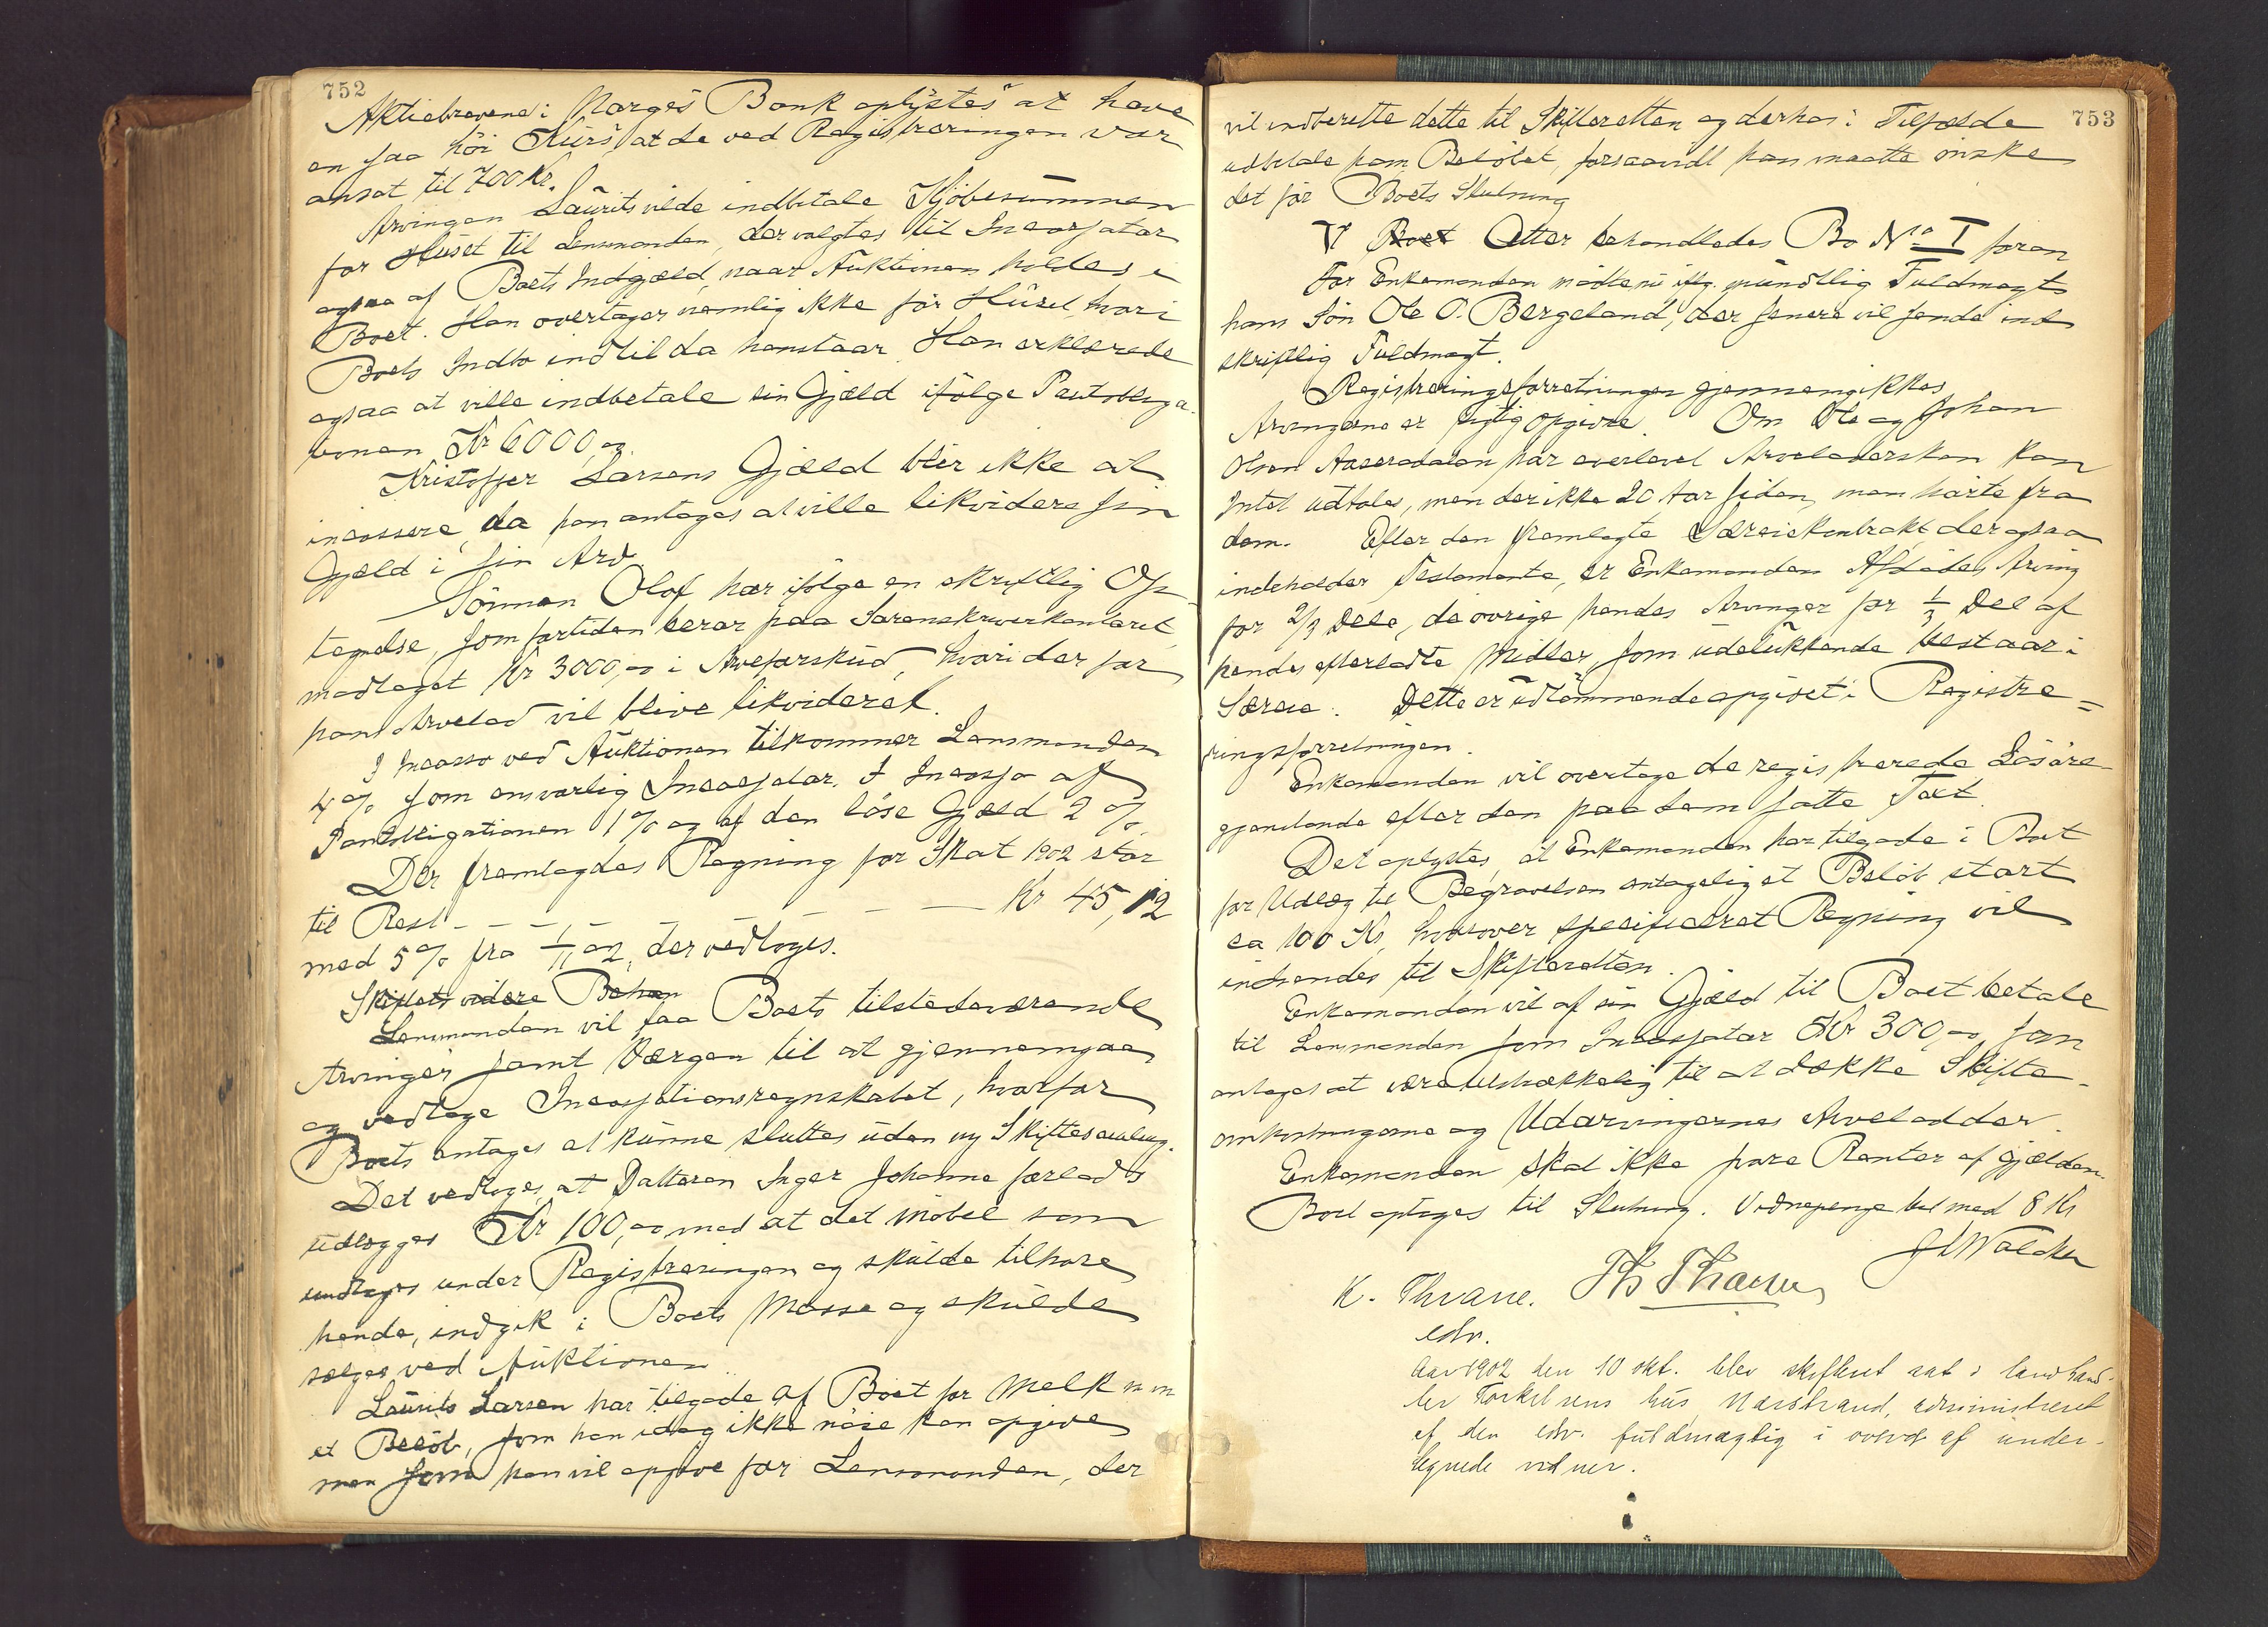 752
Aktiebrevene i Norges Bank oplystes at have
en saa höi Kurs, at de ved Registreringen var
ansat til 700 Kr.
Arvingen Laurits vilde indbetale Kjöbesummen
for Huset til Lensmanden, der valgtes til Incassator
ogsaa af Boets Indgjæld, naar Auktionen holdes i
Boet. Han overtager nemlig ikke för Huset, hvori
Boets Indbo indtil da henstaar. Han erklærede
ogsaa at ville indbetale sin Gjæld ifölge Pantobliga-
tionen Kr 6000,00.
Kristoffer Larsens Gjæld blir ikke at
incassere, da han antages at ville likvidere sin
Gjæld i sin Arv.
Sönnen Olaf har ifölge en skriftlig Op-
tegnelse, som fortiden beror paa Sorenskriverkontoret,
modtaget Kr 3000,00 i Arveforskud, hvori der for
hans Arvelod vil blive likvideret.
I Incasso ved Auktionen tilkommer Lensmanden
4 % som ansvarlig Incassator. I Incasso af
Pantobligationen 1 % og af den löse Gjæld 2 %.
Der fremlagdes Regning for Skat 1902 stor
til Rest - - - - - - - Kr 45,12
med 5 % fra 1/11 02, der vedtoges.
Skiftets videre Behan
Lensmanden vil faa Boets tilstedeværende
Arvinger samt Værgen til at gjennemgaa
og vedtage Incassationsregnskabet, hvorfor
Boets antages at kunne sluttes uden ny Skiftesamling.
Det vedtoges, at Datteren Inger Johanne forlods
udlægges Kr 100,00 mod at det Möbel som
undtoges under Registreringen og skulde tilhøre
hende, indgik i Boets Masse og skulde
sælges ved Auktionen.
Laurits Larsen har tilgode af Boet for Melk m m
et Belöb, som han idag ikke nöie kan opgive
men som han vil opgive for Lensmanden, der
753
vil indberette dette til Skifteretten og derhos i Tilfælde
udbetale ham Belöbet, forsaavidt han maatte önske
det för Boets Slutning
V Boet Etter behandledes Bo No I foran
For Enkemanden mödte nu iflg. mundtlig Fuldmagt
hans Sön Ole O. Bergeland, der senere vil sende ind
skriftlig Fuldmagt.
Registreringsforretningen gjennemgikkes
Arvingerne er rigtig opgivne. Om Ole og Johan
Olsen Aaserodalen har overlevet Arveladersken kan
Intet udtales, men der ikke 20 Aar siden, man hørte fra
dem. Efter den fremlagte Særeiekontrakt der ogsaa
indeholder Testamente, er Enkemanden Afdödes Arving
for 2/3 Dele, de øvrige hendes Arvinger for 1/3 Del af
hendes efterladte Midler, som udelukkende bestaar i
Særeie. Dette er udtömmende opgivet i Registre=
ringsforretningen.
Enkemanden vil overtage de registrerede Lösöre
gjenstande efter den paa dem satte Taxt.
Det oplystes, at Enkemanden har tilgode i Boet
for Udlæg til Begravelsen antagelig et Belöb stort
ca 100 Kr, hvorover specificeret Regning vil
indsendes til Skifteretten.
Enkemanden vil af sin Gjæld til Boet betale
til Lensmanden som Incassator Kr 300,00 som
antages at være tilstrækkelig til at dække Skifte-
omkostningerne og Udarvingernes Arvelodder.
Enkemanden skal ikke svare Renter af Gjælden.
Boet optages til Slutning. Vidnepenge bet med 8 Kr
K. Thrane. Th Thorsen
edv.
Aar 1902 den 10 okt. blev skifteret sat i landhand-
ler Torkelsens hus, Narestrand, administreret
af den edv. fuldmægtig i overvær af under-
tegnede vidner.